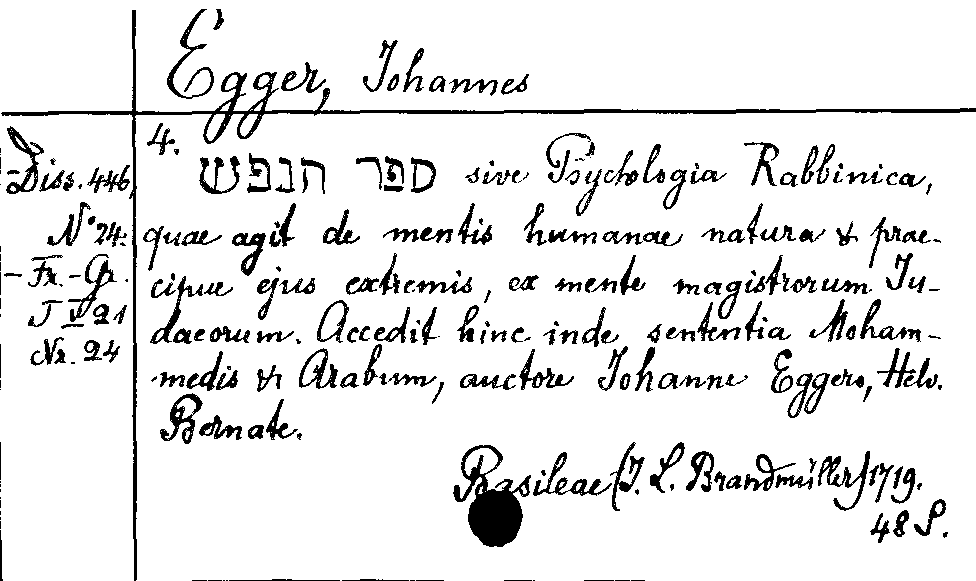 Egger, Johannes
4.
ספר הנפש sive Psychologia Rabbinica,
quae agit de mentis humanae natura & prae-
cipue ejus extremis, ex mente magistrorum Ju-
daeorum. Accedit hinc inde sententia Moham-
medis & Arabum, auctore Johanne Eggero, Helv.
Bernate.
Basileae (J. L. Brandmüller) 1719.
48 S.
Diss. 446,
No 24:
- Fr.-Gr.
J V 21
Nr. 24